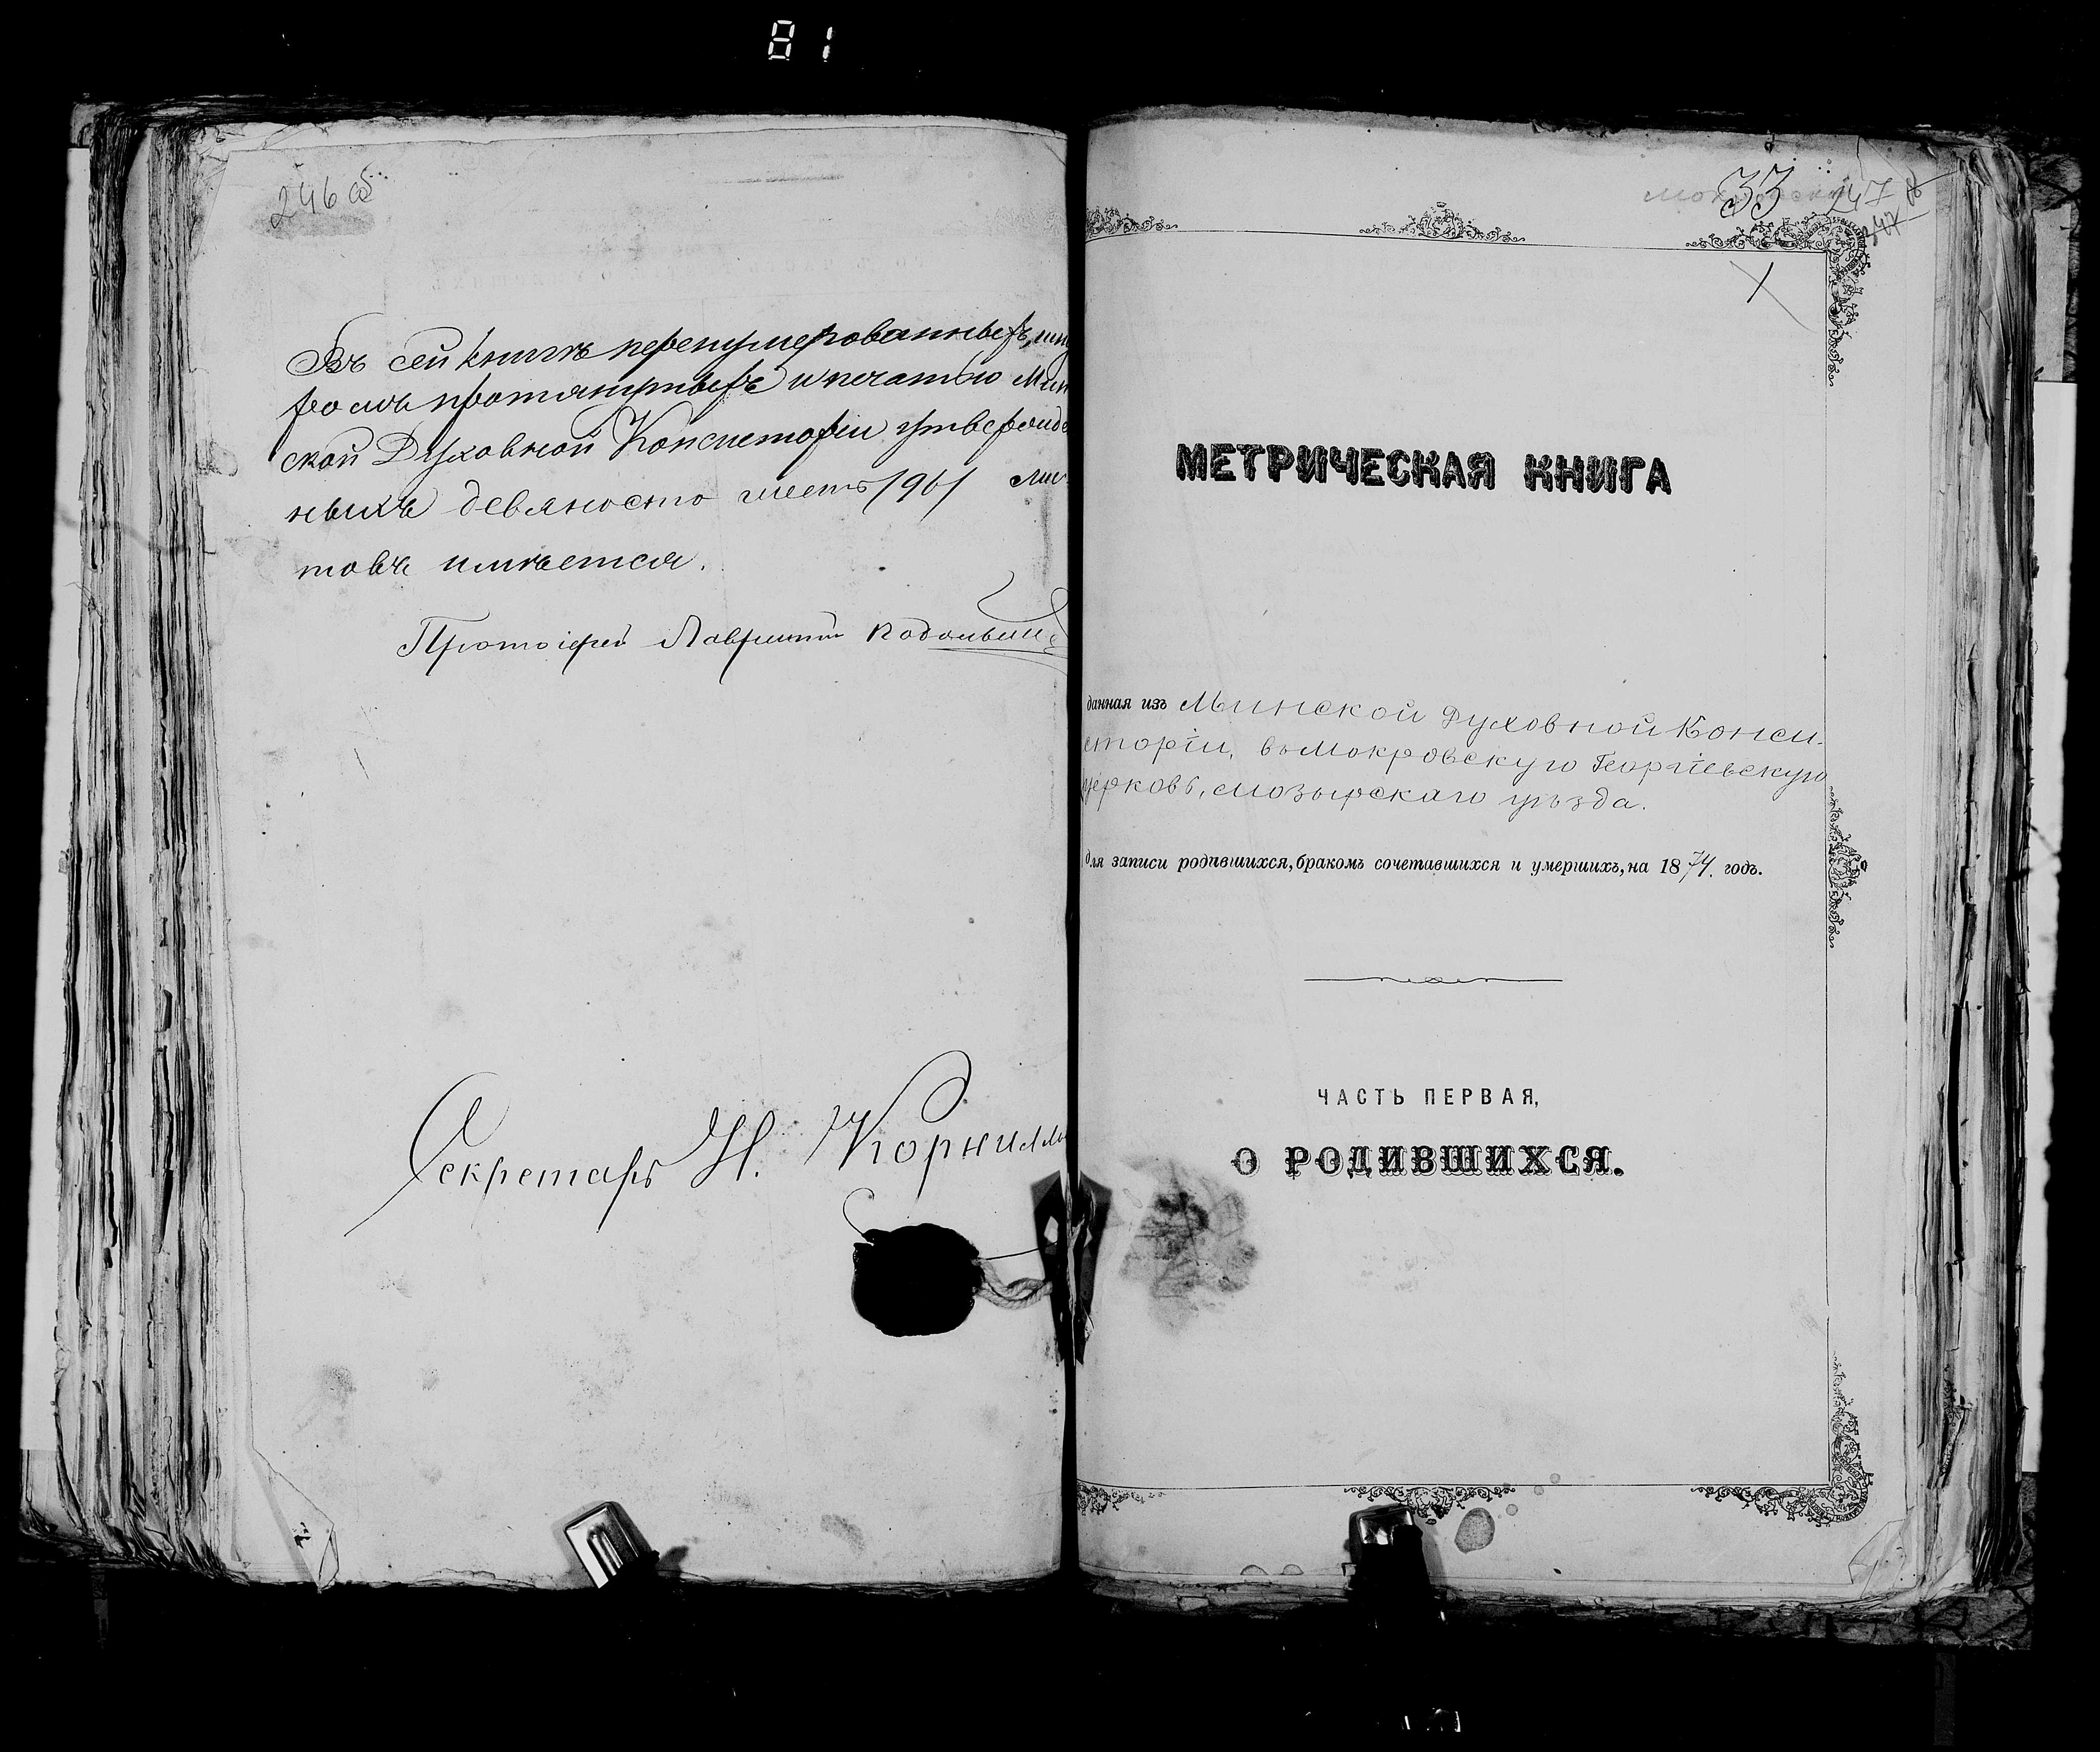 81
246 об
Въ сей книгѣ перенумерованныхъ, шну
ромъ протянутыхъ и печатью Мин
ской Духовной Консисторіи утвержде
нныхъ девяносто шесть /96/ лис
товъ имѣется.
Протоіерей Лаврентій
Секретарь Н. Корнилл
33 247
МЕТРИЧЕСКАЯ КНИГА
данная изъ Минской Духовной Конси-
сторіи, въ Мокровскую Георгіевскую
церковь, Мозырскаго уѣзда.
для записи родившихся, бракомъ сочетавшихся и умершихъ, на 1874. годъ.
ЧАСТЬ ПЕРВАЯ,
О РОДИВШИХСЯ.